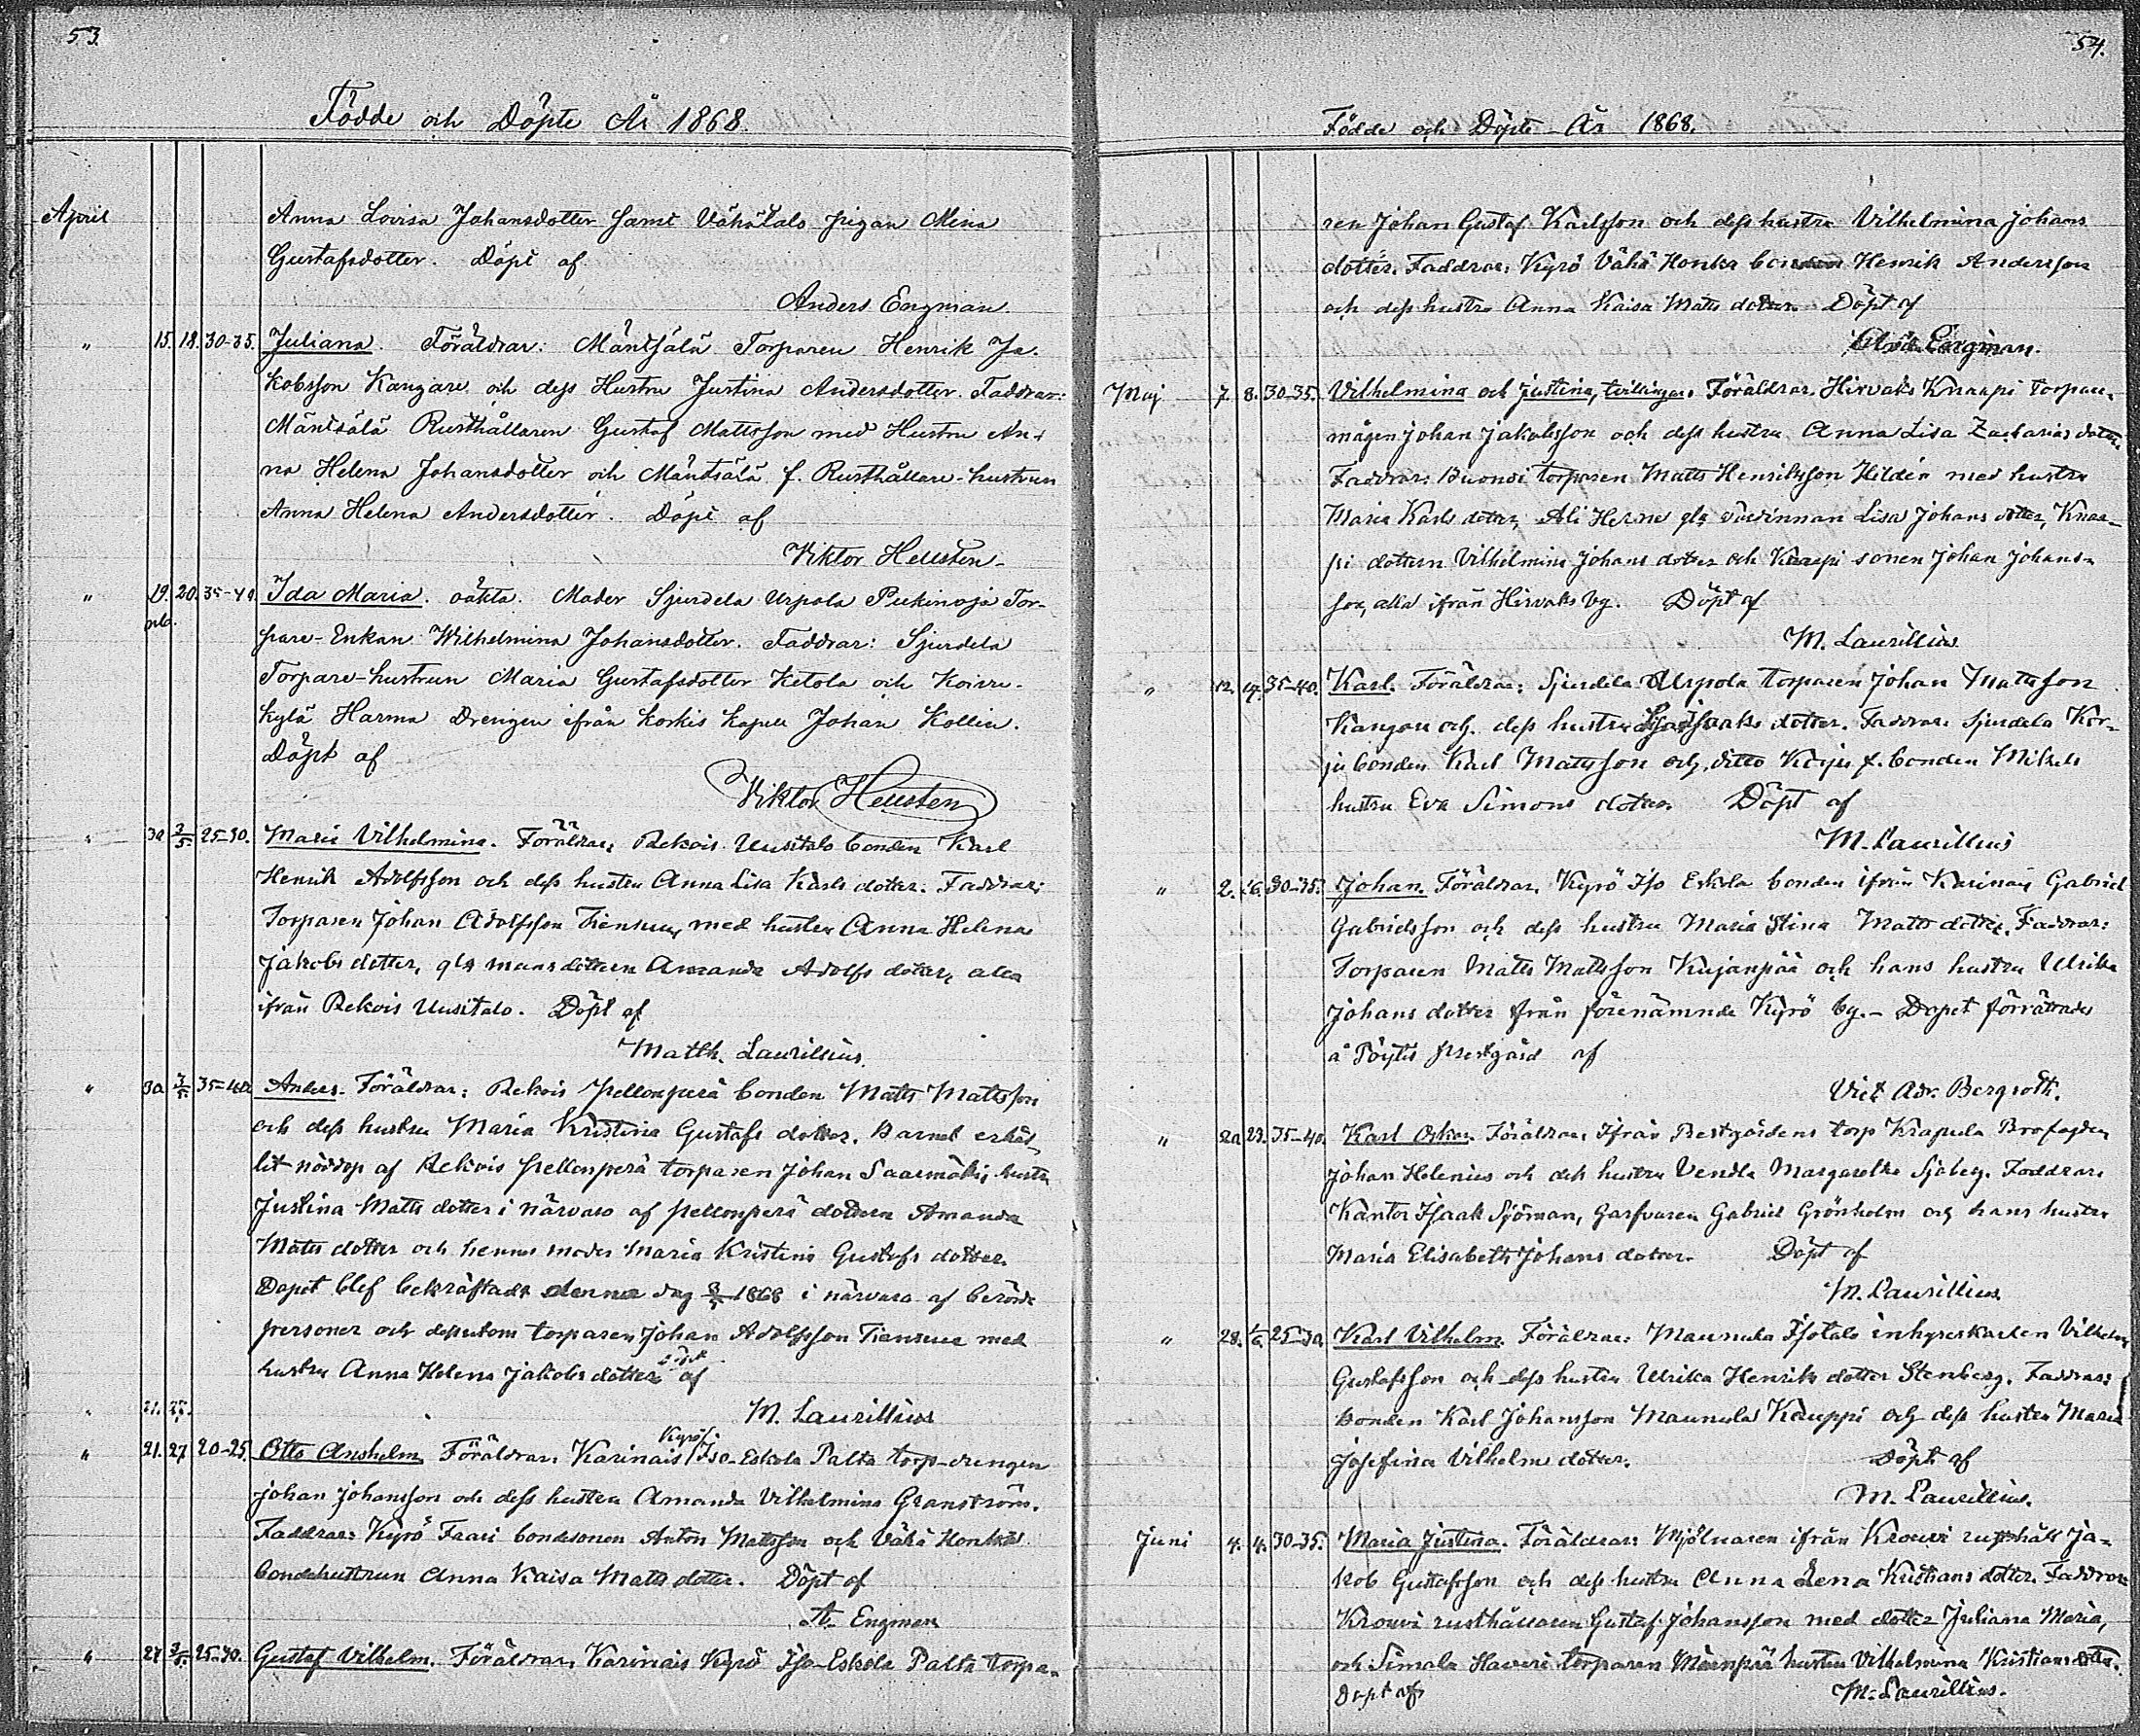 53.
Födde och Döpte År 1868.
April
Anna Lovisa Johansdotter samt Vähätalo pigan Mina
Gustafsdotter. Döpt af
Anders Engman.
" 15. 18. 30-35. Juliana. Föräldrar: Mäntsälä Torparen Henrik Ja-
kobsson Kangare och dess Hustru Justina Andersdotter. Faddrar:
Mäntsälä Rusthållaren Gustaf Mattsson med Hustru An-
na Helena Johansdotter och Mäntsälä f. Rusthållare-hustrun
Anna Helena Andersdotter. Döpt af
Viktor Hellsten.
" 19. 20. 35-40. Ida Maria. oäkta. Moder Sjurdela Urpola Pukinoja Tor-
pare-Enkan Wilhelmina Johansdotter. Faddrar: Sjurdela
Torpare-hustrun Maria Gustafsdotter Ketola och Koivu-
kylä Harma Drengen ifrån Korkis Kapell Johan Kollin.
Döpt af
Viktor Hellsten
" 30 3/5 25-30. Maria Vilhelmina. Föräldrar: Rekois Uusitalo bonden Karl
Henrik Adolfsson och dess hustru Anna Lisa Karls dotter. Faddrar:
Torparen Johan Adolfsson Tiensuu, med hustru Anna Helena
Jakobs dotter, gla mans dottern Amanda Adolfs dotter, alla
ifrån Rekois Uusitalo. Döpt af
Matth. Laurillius.
" 30 3/5 35-40 Anders. Föräldrar: Rekois Pellonperä bonden Matts Mattsson
och dess hustru Maria Kristina Gustafs dotter. Barnet erhål-
lit nöddop af Rekois Pellonperä torparen Johan Saarmäkis hustru
Justina Matts dotter i närvaro af Pellonperä dottern Amanda
Matts dotter och hennes moder Maria Kristina Gustafs dotter.
Dopet blef bekräftadt denna dag 3/5 1868 i närvaro af berörde
personer och dessutom torparen Johan Adolfsson Tiensuu med
hustru Anna Helena Jakobs dotter döpt af
M. Laurillius
" 21. 27. 20-25. Otto Anshelm. Föräldrar: Karinais Kyrö Iso-Eskola Palta torp-drengen
Johan Johansson och dess hustru Amanda Vilhelmina Granström.
Faddrar: Kyrö Faari bondesonen Anton Mattsson och Vähä Honka
bondehustrun Anna Kaisa Matts dotter. Döpt af
A. Engman
" 27 3/5. 25-30. Gustaf Vilhelm. Föräldrar: Karinais Kyrö Iso-Eskola Palta torpa-
54.
Födde och Döpte År 1868.
ren Johan Gustaf Karlsson och dess hustru Vilhelmina Johans
dotter. Faddrar: Kyrö Vähä Honka bonden Henrik Andersson
och dess hustru Anna Kaisa Matts dotter. Döpt af
Engman.
Maj 7. 8. 30-35. Vilhelmina och Justina, tvillingar. Föräldrar: Hirvaks Knaapi torpare-
mågen Johan Jakobsson och dess hustru Anna Lisa Zacharias dotter.
Faddrar: torparen Matts Henriksson Hildén med hustru
Maria Karls dotter, Ali Herne gla värdinnan Lisa Johans dotter, Knaa-
pi dottern Vilhelmina Johans dotter och Knaapi sonen Johan Johans-
son, alla ifrån Hirvaks by. Döpt af
M. Laurillius
" 12. 17. 35-40. Karl. Föräldrar: Sjurdela Urpola torparen Johan Mattsson
Kangas och dess hustru Lisa Isaaks dotter. Faddrar: Sjurdela Kor-
ju bonden Karl Mattsson och ditto Korju f. bonden Mikels
hustru Eva Simons dotter. Döpt af
M. Laurillius
" 2. 6. 30-35. Johan. Föräldrar: Kyrö Iso Eskola bonden ifrån Karinais Gabriel
Gabrielsson och dess hustru Maria Stina Matts dotter. Faddrar:
Torparen Matts Mattsson Kujanpää och hans hustru Ulrika
Johans dotter från förenämnde Kyrö by. - Dopet förrättades
å Pöytis prestgård af
Vict. Adr. Bergroth.
" 20 23. 35-40. Karl Oskar. Föräldrar: Ifrån Prestgårdens torp Krapula Brofogden
Johan Helenius och dess hustru Vendla Margaretha Sjöberg. Faddrar:
Kantor Isaak Sjöman, Garfvaren Gabriel Grönholm och hans hustru
Maria Elisabeth Johans dotter. Döpt af
M. Laurillius.
" 28. 1/6. 25-30 Karl Vilhelm. Föräldrar: Maunula Isotalo inhyseskarlen Vilhelm
Gustafsson och dess hustru Ulrika Henriks dotter Stenberg. Faddrar:
bonden Karl Johansson Maunula Kauppi och dess hustru Maria
Josefina Vilhelms dotter. Döpt af
M. Laurillius.
Juni 4. 4. 30-35. Maria Justina. Föräldrar: Mjölnaren ifrån Krouvi rusthåll Ja-
kob Gustafsson och dess hustru Anna Lena Kristians dotter. Faddrar:
Krouvi rusthållaren Gustaf Johansson med dotter Juliana Maria,
och Simala Haveri torparen Mäenpää hustru Vilhelmina Kristians dotter.
Döpt af M. Laurillius.